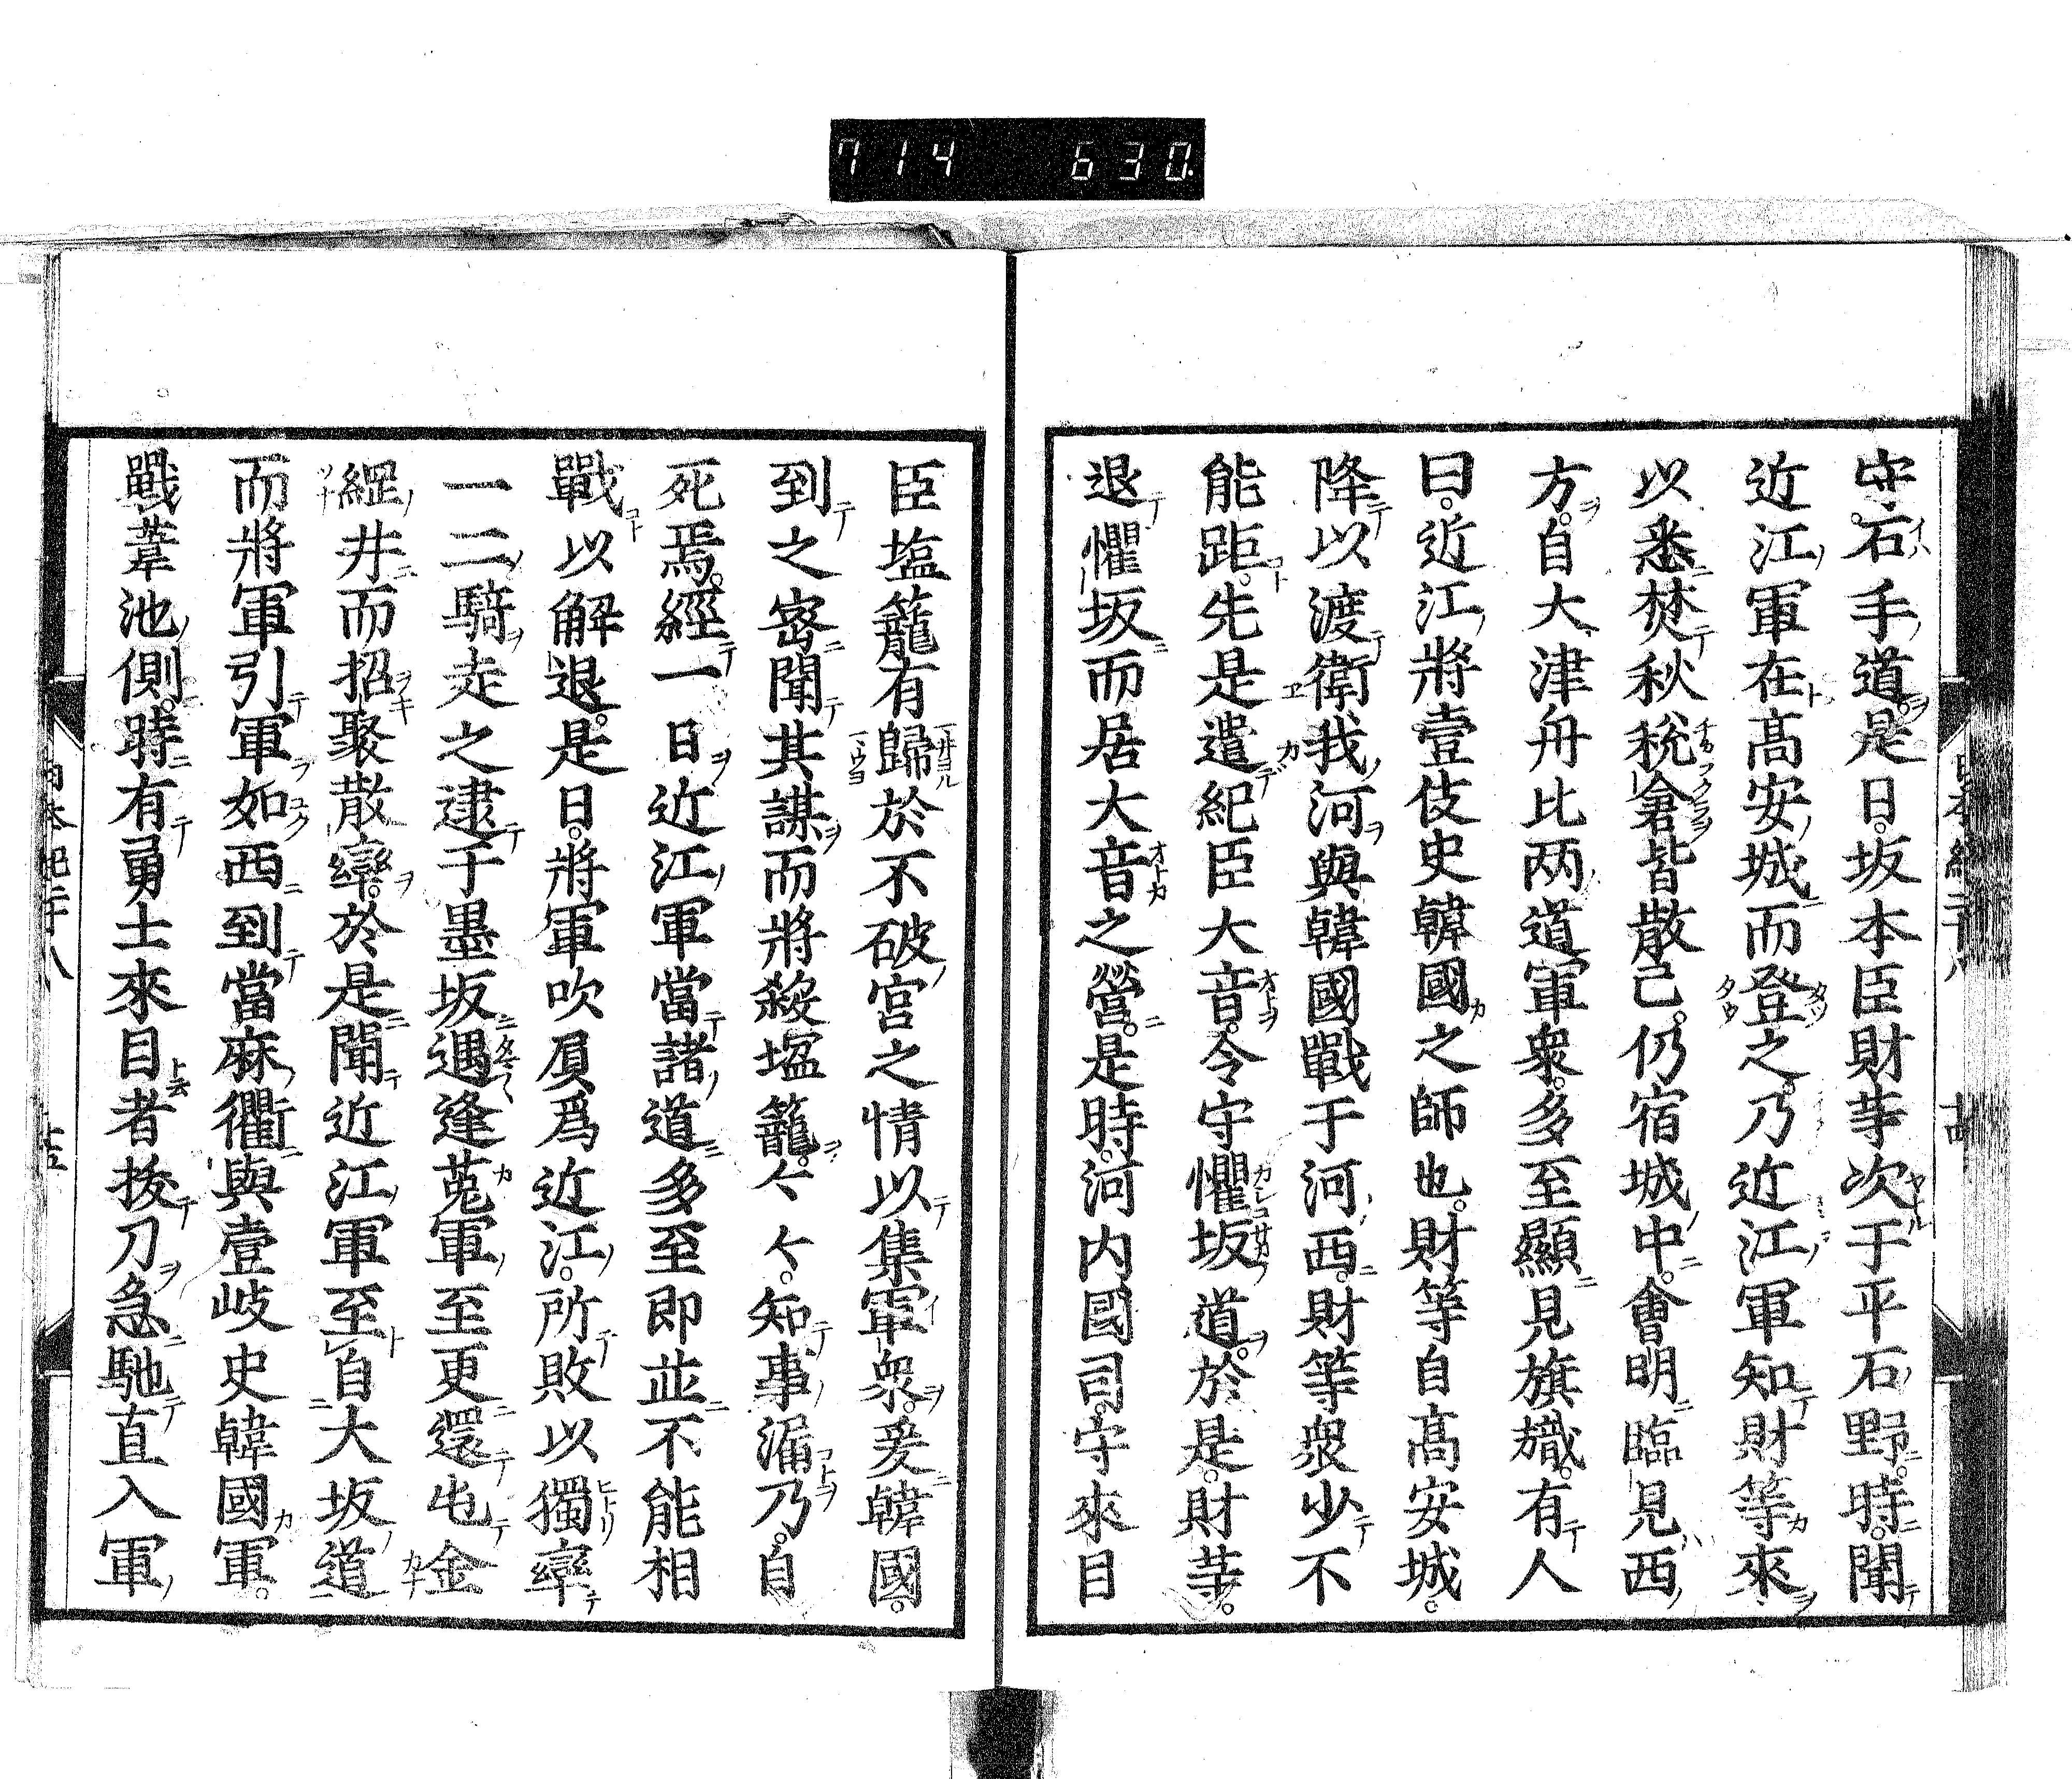 714 630.
守。石手道。是日。坂本臣財等次于平石野。時。聞
近江軍在高安城而登之。乃近江軍知財等來
以悉焚秋稅倉皆散已。仍宿城中。會明臨見西
方。自大津丹比兩道軍衆。多至顯見旗幟。有人
曰。近江將壹伎史韓國之師也。財等自高安城。
降以渡衛我河與韓國戰于河西。財等衆少不
能距。先是遣紀臣大音。令守懼坂道。於是。財等。
退懼坂而居大音之營。是時。河内國司。守來目
臣塩籠有歸於不破宮之情以集軍衆。爰韓國。
到之密聞其謀而將殺塩籠。〻〻。知事漏乃。自
死焉。經一日近江軍當諸道多至即並不能相
戰以解退。是日。將軍吹屓爲近江。所敗以獨率
一二騎走之逮于墨坂遇逢菟軍至更還屯金
綱井而招聚散率。於是聞近江軍至自大坂道
而將軍引軍如西到當麻衢與壹岐史韓國軍。
戰葦池側。時有勇士來目者拔刀急馳直入軍